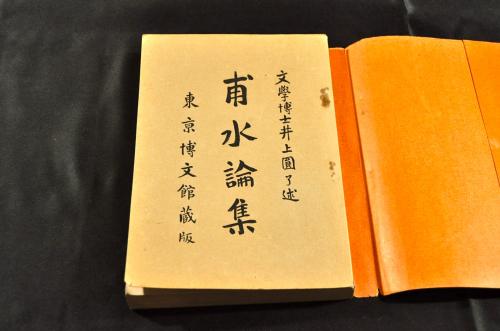 文學博士井上圓了述
甫水論集
東京博文館蔵版